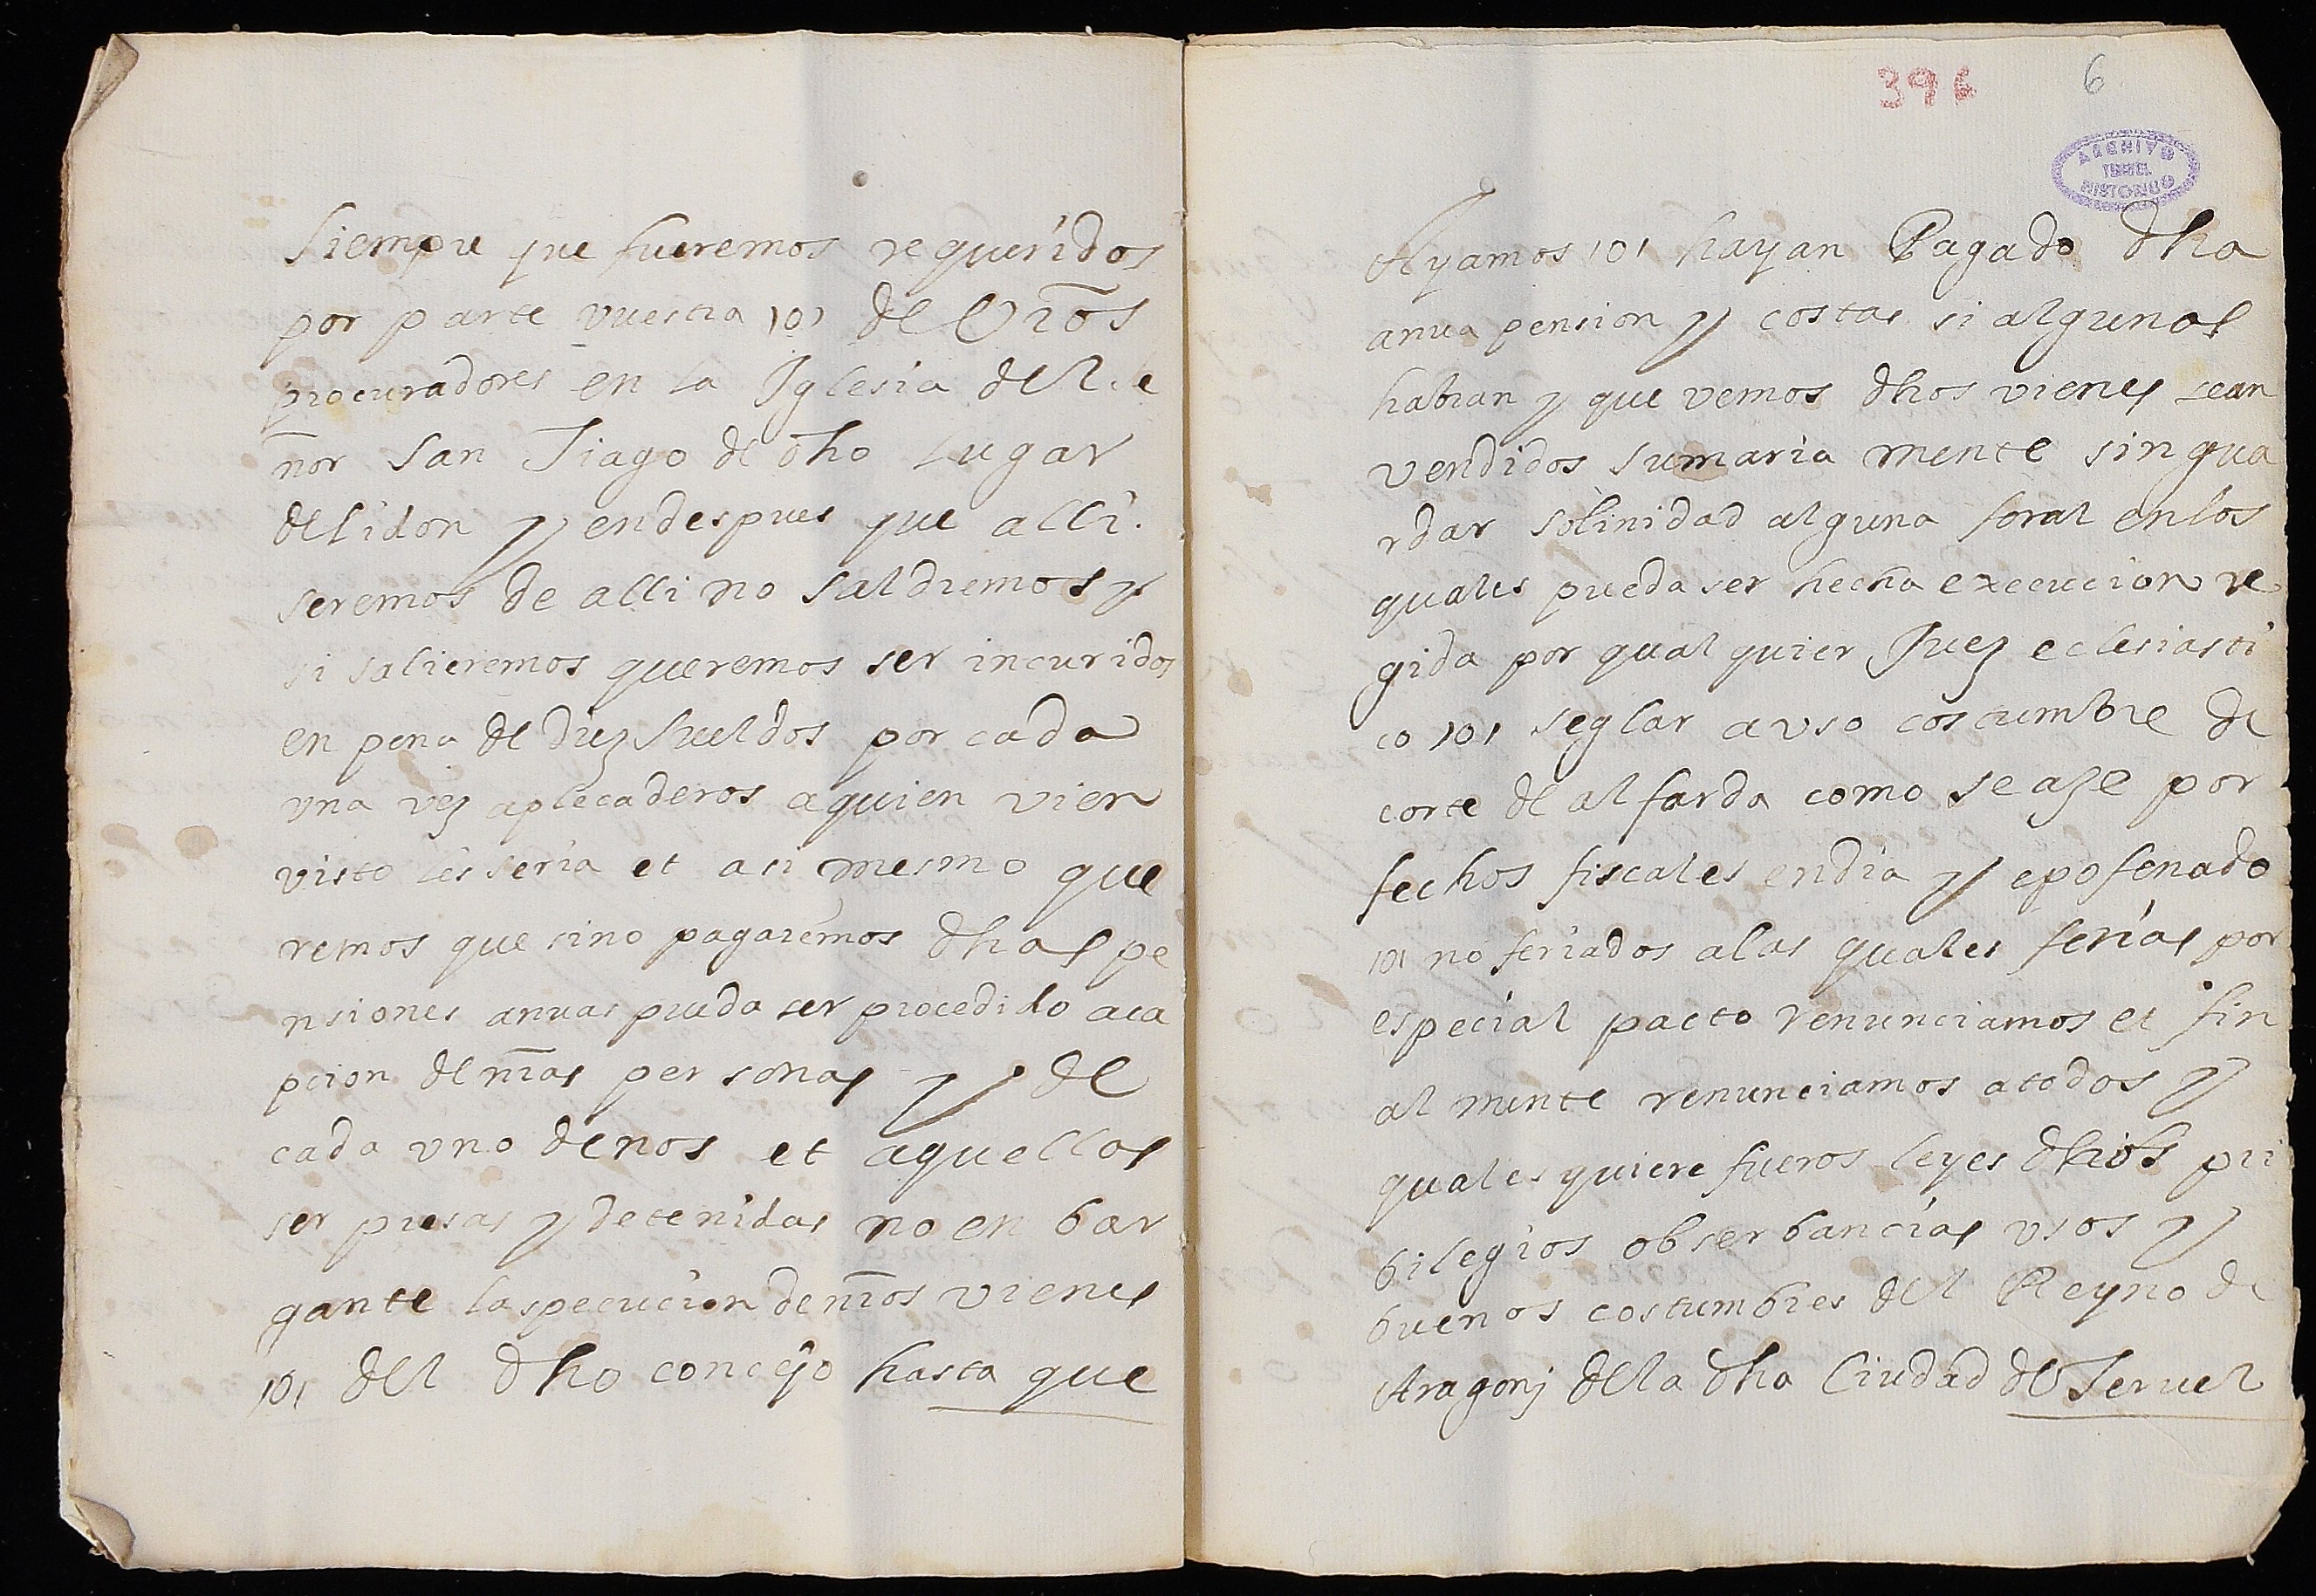 siempre que fueremos requeridos
por parte vuestra ,o, de Vros
procuradores en la Iglesia del se
ñor San Tiago de dho Lugar
de lidon y endespues que alli.
seremos de alli no saldremos y
si salieremos queremos ser incuridos
en pena de diez sueldos por cada
vna vez aplecaderos aquien vien
visto les seria et asi mesmo que
remos que sino pagaremos dhas pe
nsiones anuas pueda ser procedido aca
pcion de nras personas y de
cada vno de nos et aquellas
ser presas y detenidas no en bar
gante la specucion de nros vienes
,o, del dho concejo hasta que
396 6
ARCHIVO
TERUEL
HISTORICO
Ayamos ,o, hayan Pagado dha
anua pension y costas si algunas
habran y que vemos dhos vienes sean
vendidos sumaria mente sin gua
rdar solinidad alguna foral en los
quales pueda ser hecha execucion re
gida por qual quier Juez eclesiasti
co ,o, seglar a vso costumbre de
corte de alfarda como se aze por
fechos fiscales en dia y epo fenado
,o, no feriados a las quales ferias por
especial pacto renunciamos et fin
al mente renunciamos a todos y
quales quiere fueros leyes dhios pri
bilegios obserbancias vsos y
buenos costumbres del Reyno de
Aragon j de la dha Ciudad de Teruel